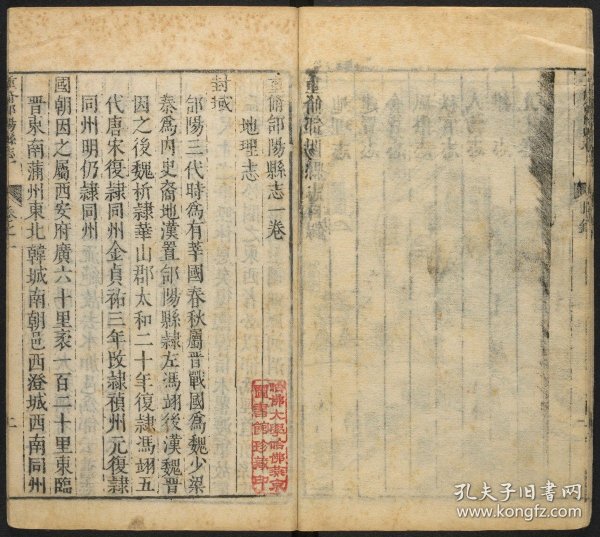 重脩郃陽縣志一卷
地理志
封域
郃陽三代時爲有莘國春秋屬晉戰國爲魏少梁
秦爲內史裔地漢置郃陽縣隸左馮翊後漢魏晉
因之後魏析隸華山郡太和二十年復隸馮翊五
代唐宋復隸同州金貞祐三年改隸禎州元復隸
同州明仍隸同州
國朝因之屬西安府廣六十里袤一百二十里東臨
晉東南蒲州東北韓城南朝邑西澄城西南同州
哈佛大學哈佛燕京
圖書館珍藏印
孔夫子旧书网
www.kongfz.com